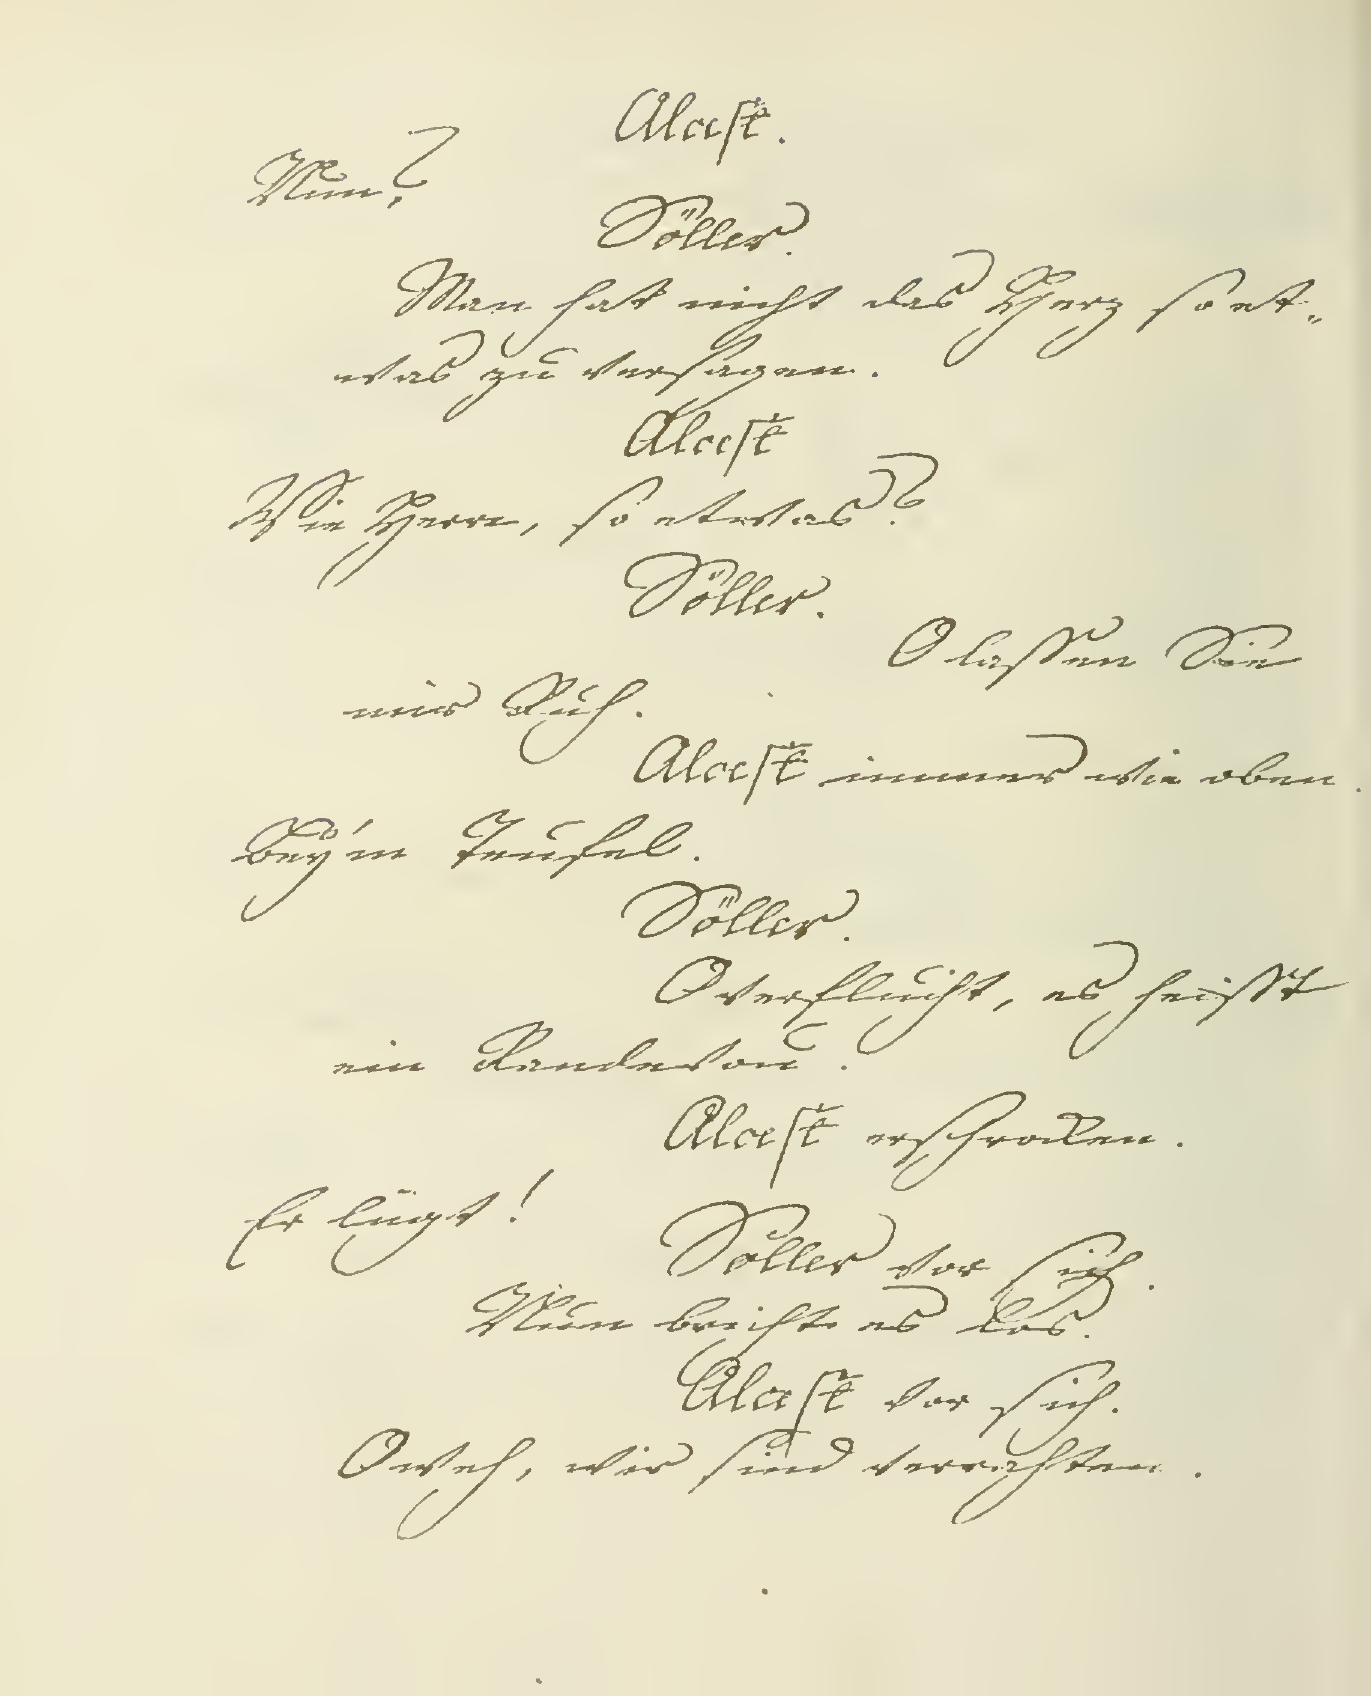 Alcest.
Nun?
Söller.
Man hat nicht das Herz so et-
was zu versagen.
Alcest
Wie Herr, so etwas?
Söller.
O lassen Sie
mir Ruh.
Alcest immer wie oben.
Bey'm Teufel.
Söller.
O verflucht, es heisst
ein Rendevou.
Alcest erschrocken.
Er lügt!
Söller vor sich.
Nun bricht es los.
Alcest vor sich.
O weh, wir sind verrathen.